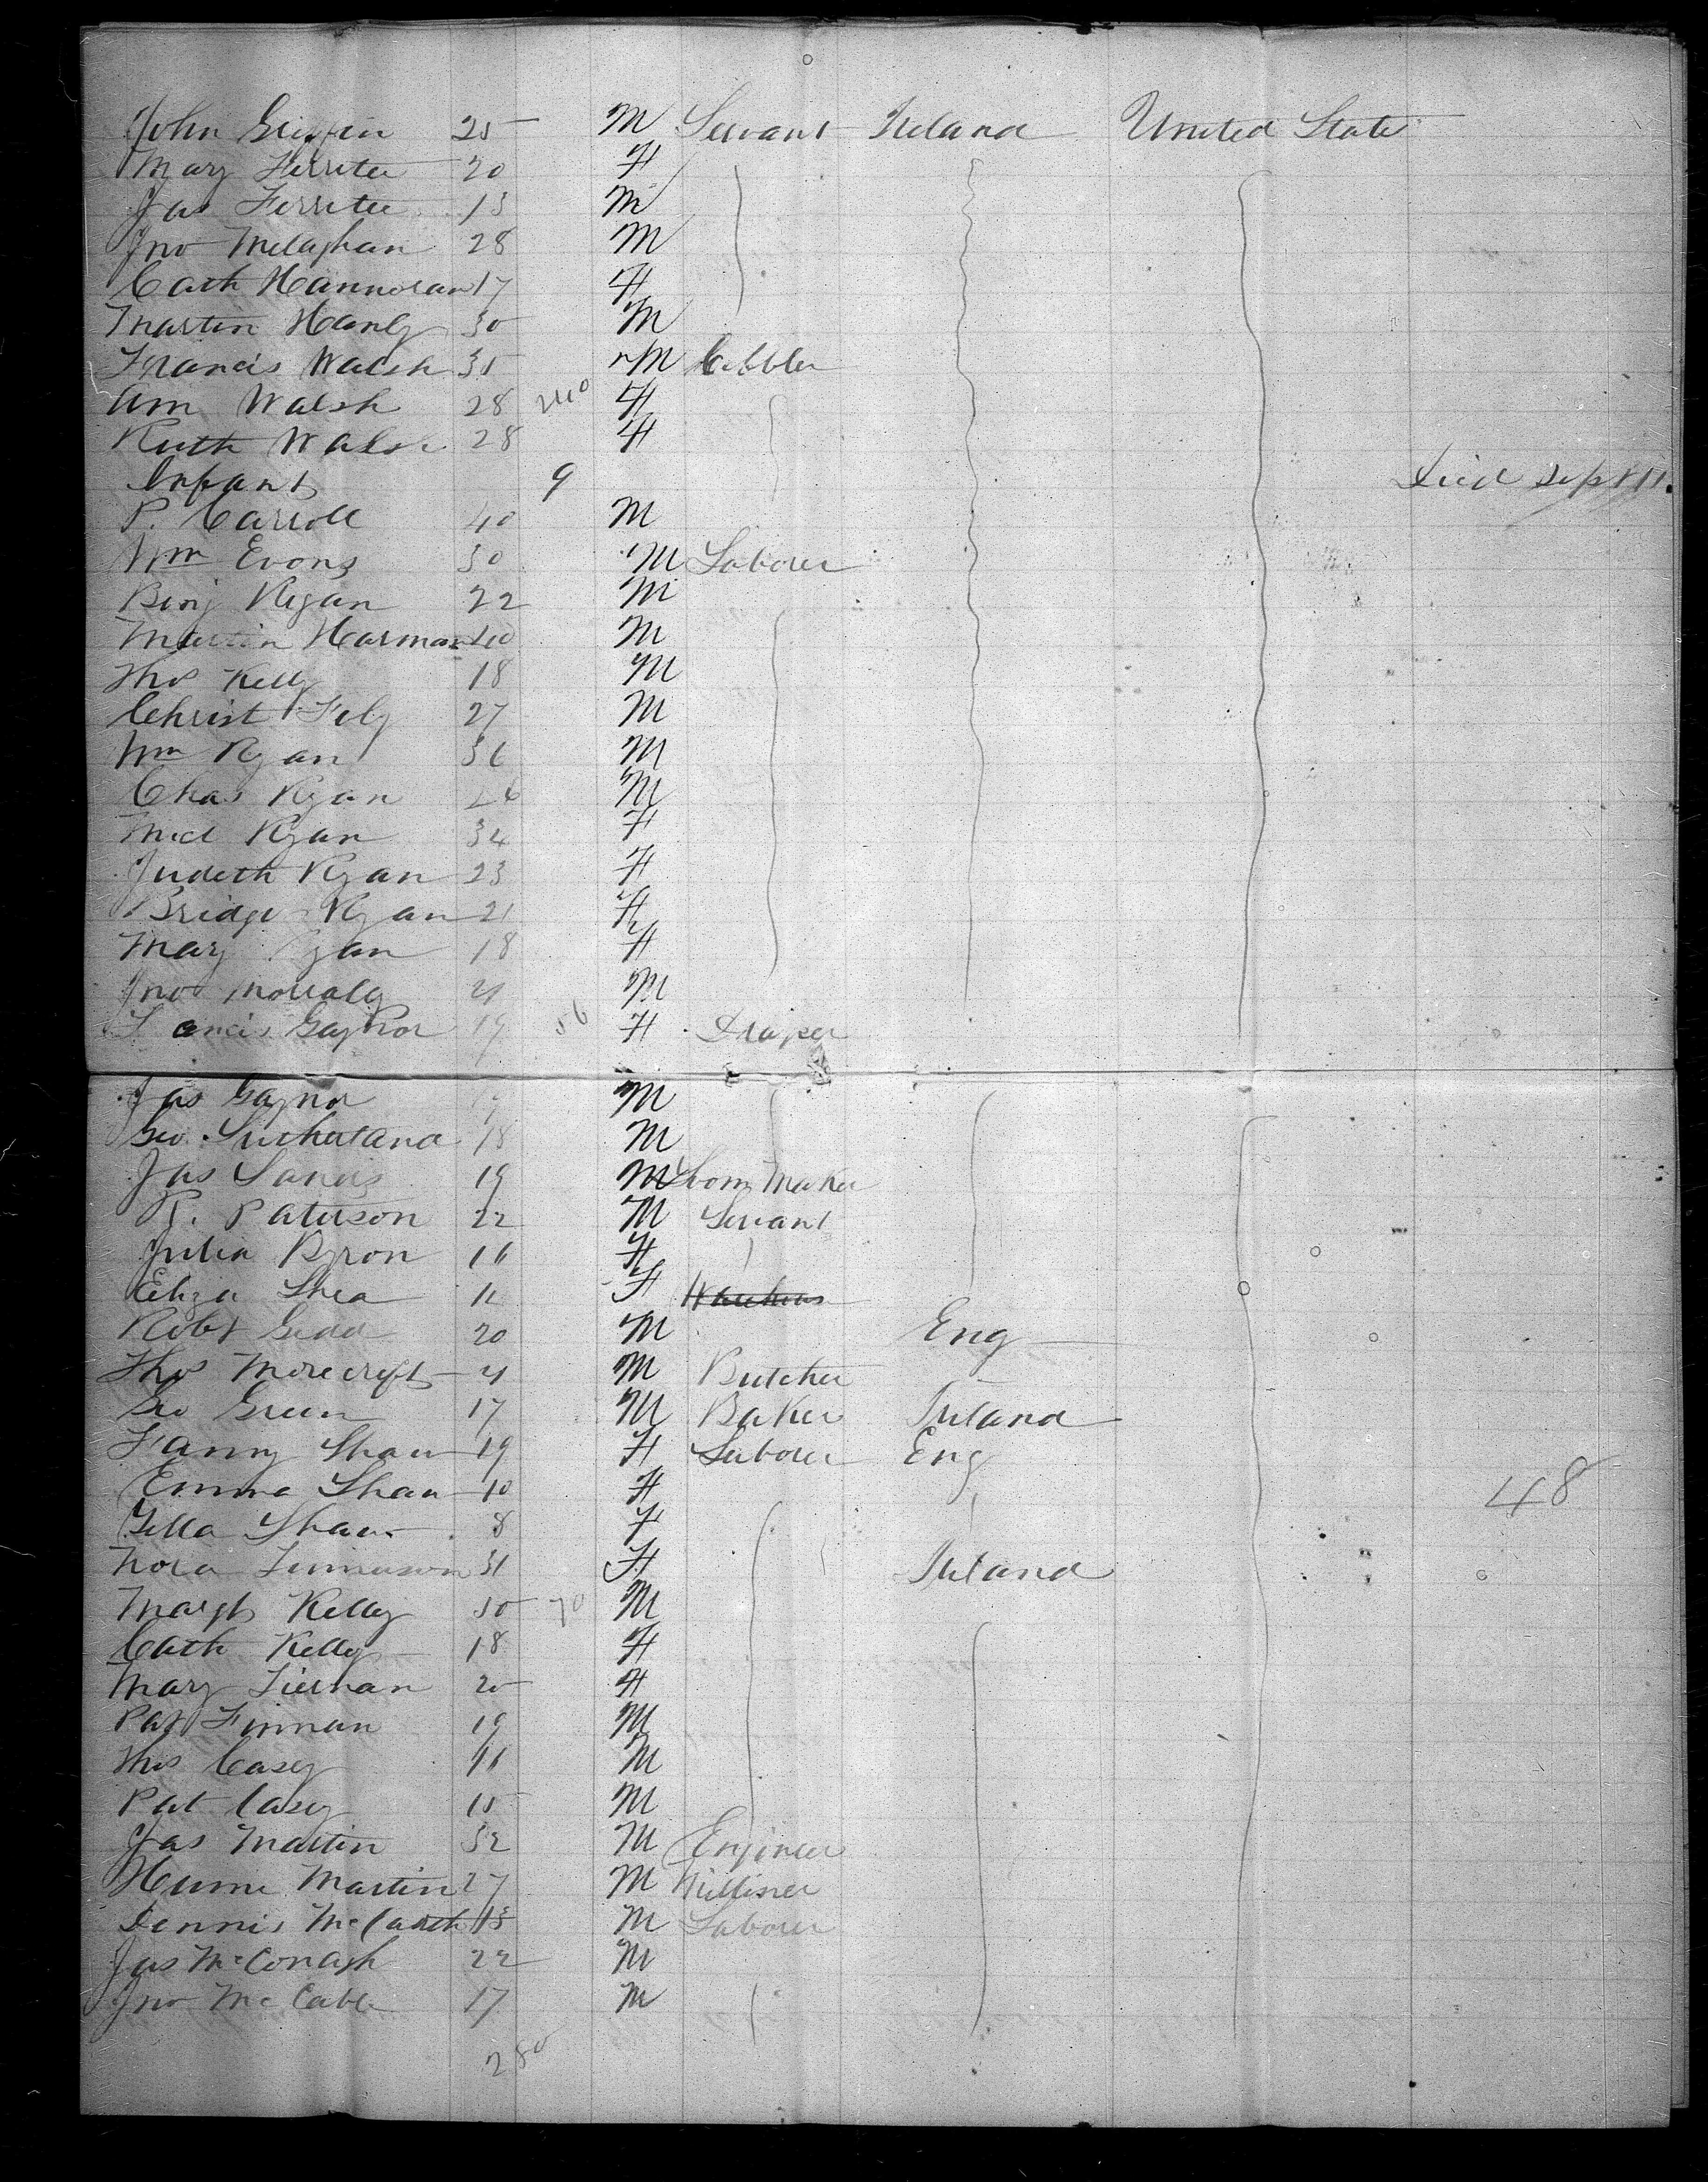 John Griffin 25 M Servant Ireland United State
Mary Ferriter 20 F
Jas Ferriter 13 M
Jno 28 M
Cath Hannoran 17 F
Martin Hanly 30 M
Francis Walsh 35 M Cobbler
Ann Walsh 28 240 F
Ruth Walsh 28 F
Infant 9 Died Sept 11
P. Carroll 40 M
Wm Evons 30 M Laborer
Benj Regan 22 M
Martin Harman 40 M
Thos Kelly 18 M
Christ 27 M
Wm Ryan 36 M
Chas Ryan 26 M
Micl Ryan 34 F
Judeth Ryan 23 F
Bridge Ryan 21 F
Mary Ryan 18 F
Jno 21 M
Francis Gaynor 19 56 F Draper
Jas Gaynor 19 M
Geo. Sutherland 18 M
Jas 19 M Loom Maker
R. Paterson 22 M Servant
Julia Byron 16 F
Eliza Shea F
Robt 20 M Eng
Thos Morecroft 21 M Butcher
Geo Green 17 M Baker Ireland
Fanny Shaw 19 F Laborer Eng
Emma Shaw 10 F 48
Shaw 8 F
Nora 31 F Ireland
Margt Kelly 50 70 M
Cath Kelly 18 F
Mary Tiernan 20 F
Pat Finnan 19 M
Thos Casey M
Pat Casey 15 M
Jas Martin 32 M Engineer
Martin 27 M Milliner
Dennis McCarth 18 M Laborer
Jas McConagh 22 M
Jno McCabe 17 M
280